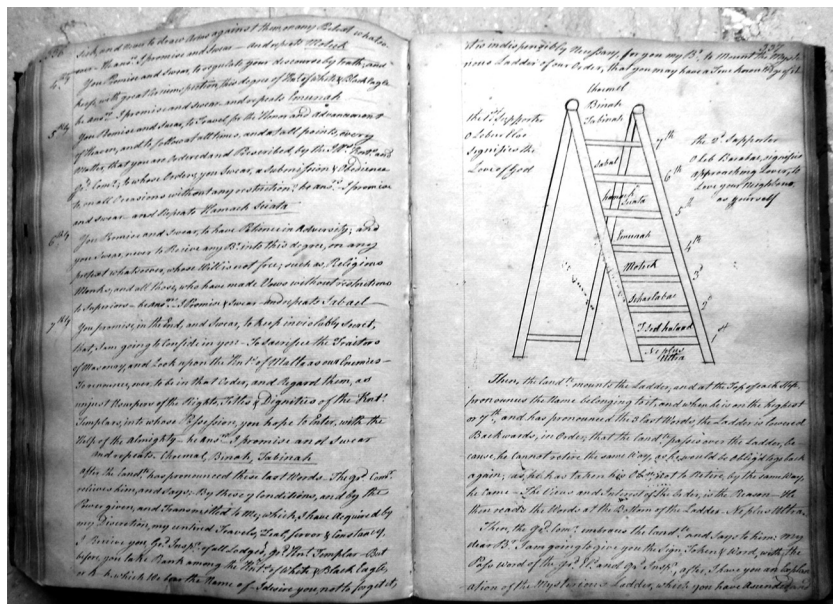 Sick, and Now to draw Arms against them on any Pretext whatso-
ever. he ansrs. I promise and Swear - and repeats Moleck
4thly
You Promise and Swear, to regulate your discourse by truth, and
keep with great circumspection this degree of Knt. of White & Black Eagle
he ansrs. I promise and swear - and repeats Emunah
5thly
You Promise and Swear, to Travel for the Honor and advancement
of Heaven, and to follow at all times, and at all points every
Matter, that you are Ordered and Prescribed, by the Ill. Knt. and
Gd. Comr.; to whose Orders, you Swear, a Submission & Obedience
on all Occasions without any restriction; he ansr. I promise
and swear - and Repeats Hamach Sciata
6thly
You Promise and Swear, to have Patience in Adversity; and
you swear, never to Receive any Br. into this degree, on any
pretext whatsoever, whose Will is not free; such as, Religious
Monks, and all those, who have made Vows without restrictions
to Superiors - he ansrs. I Promise & Swear - and repeats Sabael
7thly
You promise, in the End, and Swear, to keep inviolably Secret,
that, I am going to Confide in you - To Sacrifice the Traitors
of Masonry, and Look upon the Knts. of Malta, as our Enemies -
To renounce, ever, to be in that Order, and Regard them, as
unjust Usurpers of the Rights, Titles & Dignities of the Knt.
Templars, into whose Possession, you hope to Enter, with the
Help of the Almighty - he ansr. I promise and Swear
and repeats. Choumel, Binah, Tabinah
after the Candte. has pronounced these last Words - The Gd. Comr.
relieves him, and Says: By these 7 Conditions, and by the
Power given, and Transmitted to Me; which, I have Acquired by
my Discretion, my untired Travels, Zeal, fervor & Constancy.
I Receive you, Gd. Inspr. of all Lodges, Gd. Knt. Templar - But
before you take Rank among the Knts. of White & Black Eagle,
which We bear the Name of - I desire you, not to forget it,
it is indispensibly Necessary, for you my Br. to Mount the Myste-
rious Ladder of our Order, that you may have a True knowledge of it.
Choumel
Binah
Tabinah
the 1st. Supporter
Oheb Eloe
Signifies the
Love of God
the 2d. Supporter
Oheb Karabas, signifies
approaching Lover, to
Love your Neighbour,
as yourself
7th
Sabal
6th
Hamach
Sciata
5th
Emunah
4th
Moleck
3d
Schaclabac
2d
Tsedhakad
1st
Ne plus
Ultra
Then, the Candte. mounts the Ladder, and at the Top of each Step
pronounces the Name belonging to it, and when he is on the highest
or 7th, and has pronounced the 3 last Words, the Ladder is lowered
Backwards, in Order, that the Candte. passes over the Ladder, be-
cause, he Cannot retire the same Way, as he would be obliged to go back
again; as, he has taken his Obn. not to Retire, by the same Way,
he came - The Views and Interest of the Order, is the Reason - He
then reads the Words at the Bottom of the Ladder - Ne plus Ultra.
Then, the Gd. Comr. embraces the Candte. and Says to him: my
dear Br. I am going to give you the Sign, Token & Word, with the
Pass Word of the Gd. El. and Gd. Inspr. after, I have you an explan-
ation of the Mysterious Ladder, which you have Ascended and